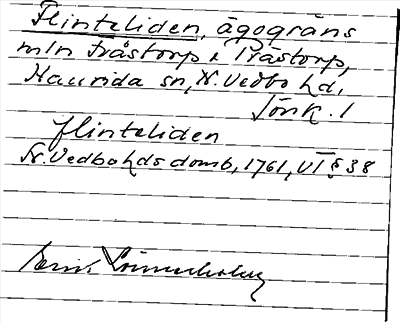 Flinteliden, ägogräns
mln Fråstorp & Prästorp,
Haurida sn, N. Vedbo hd,
Jönk. l
flinteliden
N. Vedbo hds domb, 1761, VI § 38